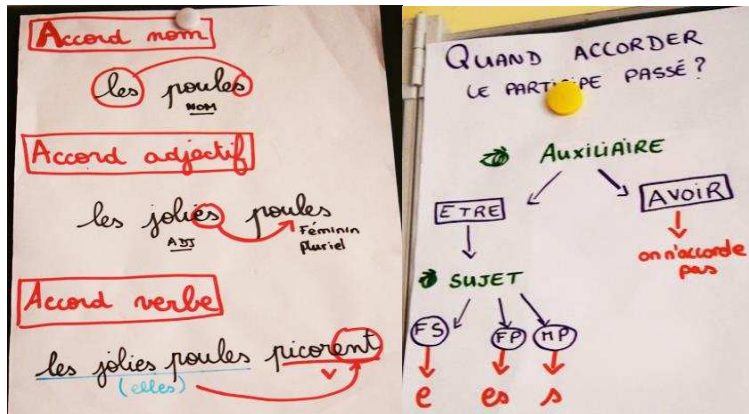 Accord nom
les poules
NOM
Accord adjectif
les jolies poules
ADJ
Féminin
pluriel
Accord verbe
les jolies poules picorent
(elles)
V
QUAND ACCORDER
LE PARTICIPE PASSÉ ?
AUXILIAIRE
ETRE
AVOIR
on n'accorde
pas
SUJET
FS FP MP
e es s